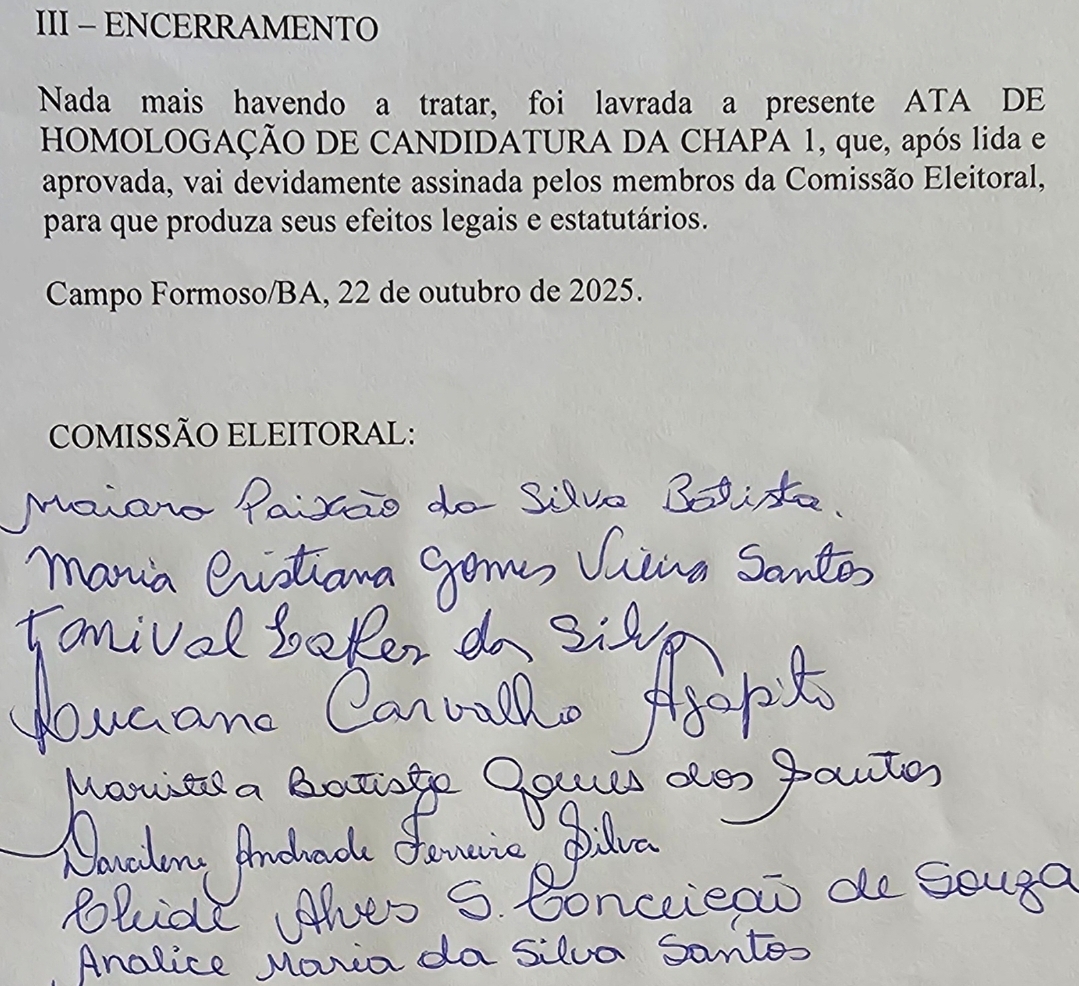 III – ENCERRAMENTO
Nada mais havendo a tratar, foi lavrada a presente ATA DE
HOMOLOGAÇÃO DE CANDIDATURA DA CHAPA 1, que, após lida e
aprovada, vai devidamente assinada pelos membros da Comissão Eleitoral,
para que produza seus efeitos legais e estatutários.
Campo Formoso/BA, 22 de outubro de 2025.
COMISSÃO ELEITORAL:
Maiara Paixão da Silva Batista.
Maria Cristiana Gomes Vieira Santos
da Silva
Luciana Carvalho Agapito
Maristela Batista Gomes dos Santos
Darcilene Andrade Ferreira Silva
Cleide Alves S. Conceição de Souza
Analice Maria da Silva Santos